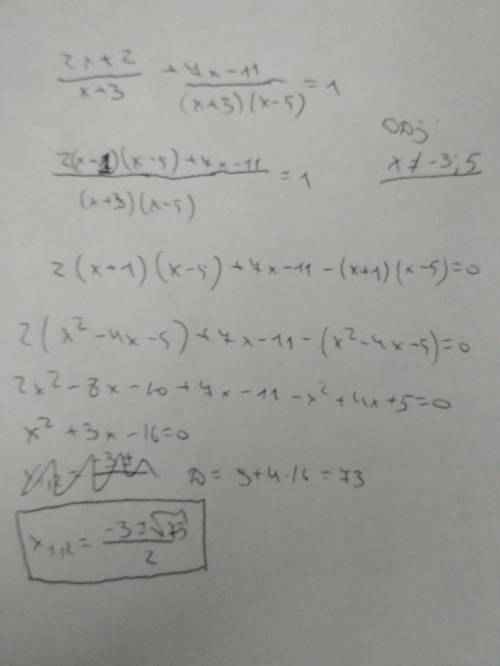 (2x+2)/(x+3) + (7x-11)/((x+3)(x-5)) = 1
ОДЗ:
x ≠ -3; 5
(2(x-1)(x-5)+7x-11)/((x+3)(x-5)) = 1
2(x+1)(x-5)+7x-11-(x+1)(x-5)=0
2(x²-4x-5)+7x-11-(x²-4x-5)=0
2x²-8x-10+7x-11-x²+4x+5=0
x²+3x-16=0
D=9+4·16=73
x₁,₂ = (-3±√73)/2